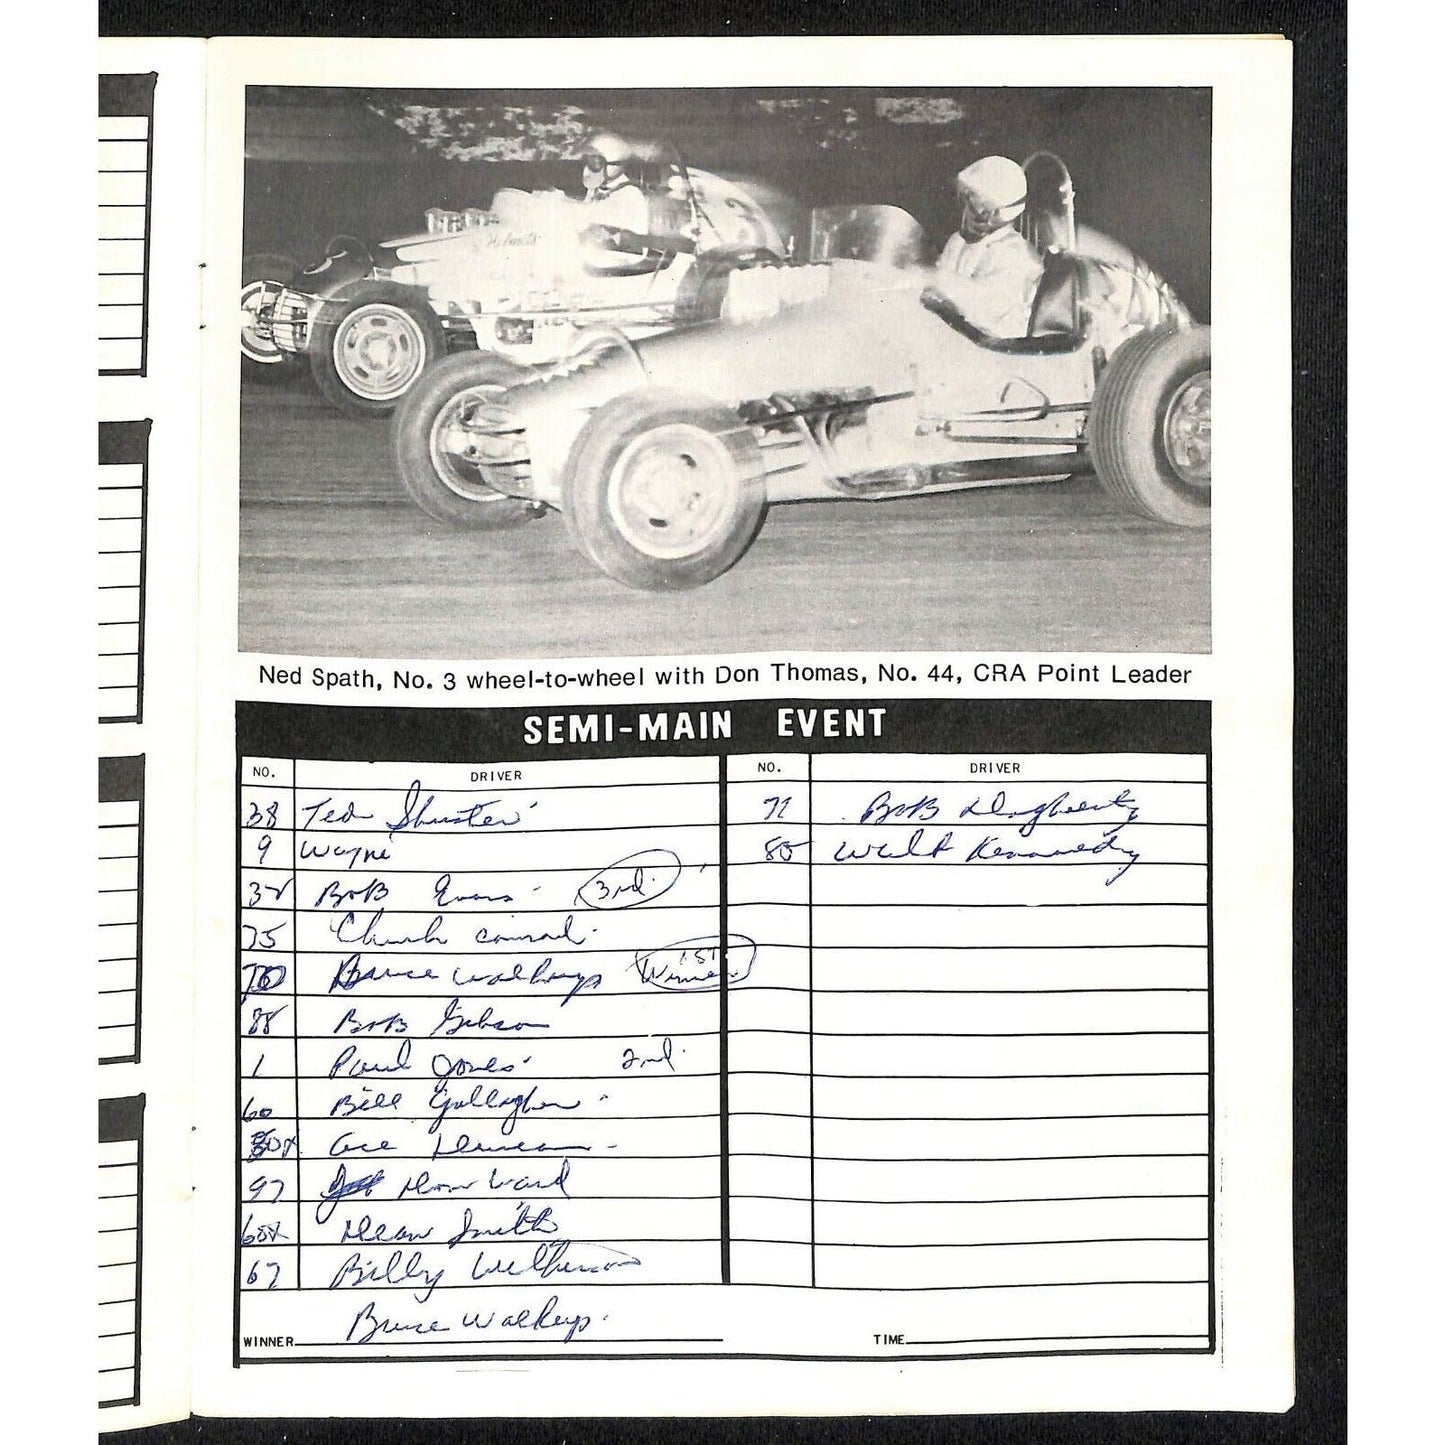 Ned Spath, No. 3 wheel-to-wheel with Don Thomas, No. 44, CRA Point Leader
SEMI-MAIN EVENT
NO. DRIVER NO. DRIVER
38 Ted Shuster 71 Bob Dougherty
9 Wayne 85 Walt Kennedy
Bob Evans 3rd.
75 Chuck Conrad
Bruce Walkup 1ST Winner
88 Bob Gibson
1 Paul Jones 2nd.
60 Bill Gallagher
Ace Duncan
97 Don Ward
Dean Smith
67 Billy Wilkerson
WINNER Bruce Walkup. TIME